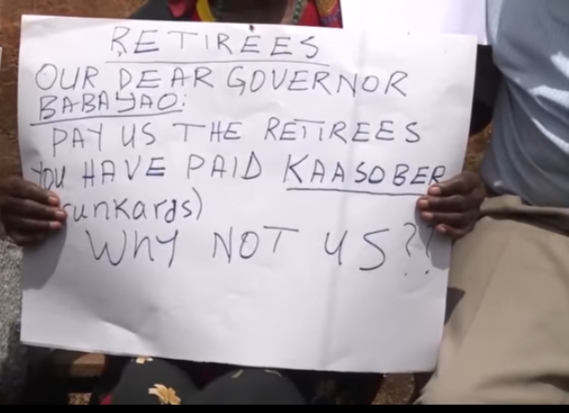 RETIREES
OUR DEAR GOVERNOR
BABAYAO:
PAY US THE RETIREES
YOU HAVE PAID KAASOBER
runkards)
WHY NOT US??